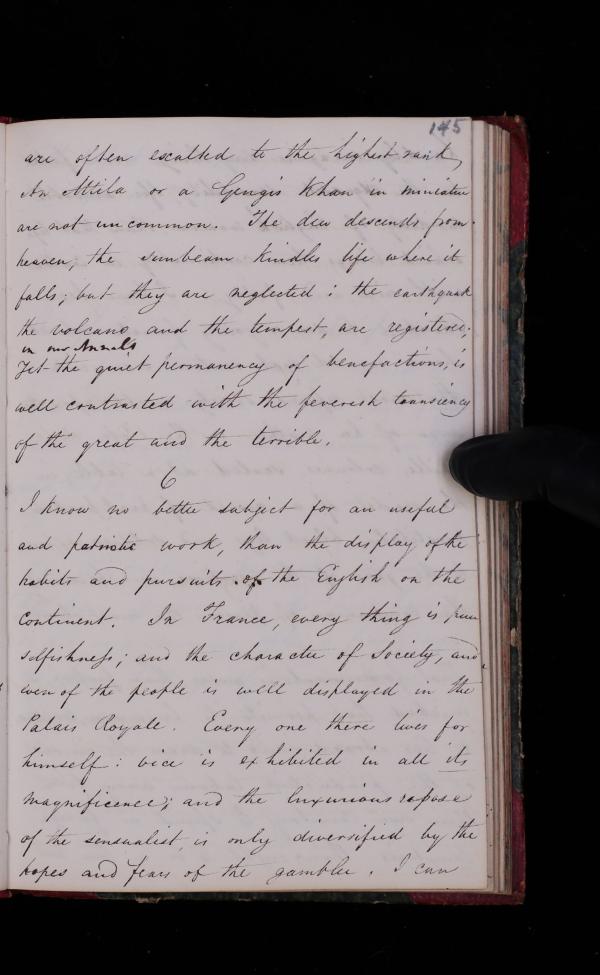 145
are often escalted to the highest rank,
An Attila or a Gengis Khan in miniature
are not uncommon. The dew descends from
heaven, the sunbeam kindles life where it
falls; but they are neglected: the earthquake
the volcano and the tempest, are registered;
in our Annals
Yet the quiet permanency of benefactions, is
well contrasted with the feverish transiency
of the great and the terrible.
6
I know no better subject for an useful
and patriotic work, than the display of the
habits and pursuits of the English on the
Continent. In France, every thing is pure
selfishness; and the character of Society, and
even of the people is well displayed in the
Palais Royale. Every one there lives for
himself: vice is exhibited in all its
magnificence; and the luxurious repose
of the sensualist, is only diversified by the
hopes and fears of the gambler. I can